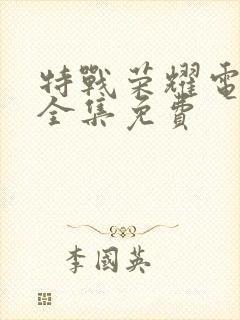 特戰荣耀電
全集免費
李國英